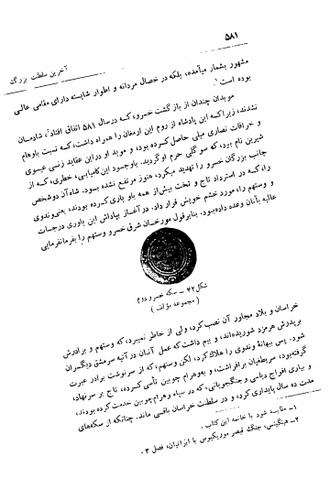 ۵۸۱
آخرین سلطنت بزرگ
مشهور بشمار میآمده، بلکه در خصال مردانه و اطوار شایسته دارای مقامی عالی
بوده است ۱
موبدان چندان از باز گشت خسرو، که در سال ۵۸۱ اتفاق افتاد، شادمان
نشدند، زیرا که این پادشاه از روم این ارمغان را همراه داشت، که نسبت باوهام
و خرافات نصاری میلی حاصل کرده بود، و موبد او در این عقاید زنی عیسوی
شیرین نام بود، که سوگلی حرم او گردید. باوجود این کامیابی، خطری، که از
جانب بزرگان خسرو را تهدید میکرد، هنوز مرتفع نشده بود. شاه آن دو شخص
را، که در استرداد تاج و تخت بیش از همه باو یاری کرده بودند، یعنی وندوی
و وستهم را، مورد خشم خویش قرار داد. در آغاز بپاداش این یاوری درجات
عالیه بآنان وعده داده بود. بنابر قول مورخان شرق خسرو وستهم را بفرمانفرمایی
شکل ۴۲ – سکه خسرو دوم
( مجموعه مؤلف )
خراسان و بلاد مجاور آن نصب کرد، ولی از خاطر نمیبرد، که وستهم و برادرش
بر پدرش هرمزد شوریده‌اند، و بیم داشت که عمل آنان در آتیه سرمشق دیگران
شود. پس ببهانهٔ وندوی را هلاک کرد، لکن وستهم، که از سرنوشت برادر عبرت
گرفته بود، سر بطغیان برافراشت، و به وهرام چوبین تأسی کرده، تاج بر سر نهاد،
و بیاری افواج دیلمی و جنگجویانی، که در سپاه وهرام چوبین خدمت کرده بودند،
مدت ده سال پایداری کرد، و در سلطنت خراسان باقی ماند. چنانکه از سکه‌های
۱– مقایسه شود با خاتمه این کتاب .
۲– هیگینس، جنگ قیصر موریکیوس با ایرانیان، فصل ۳ .